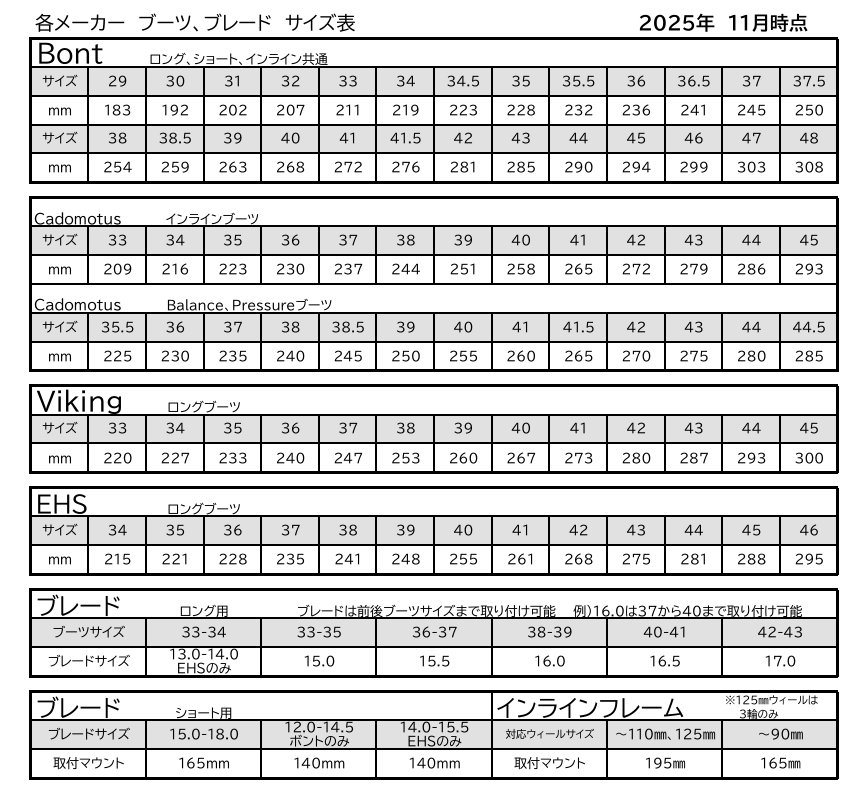 各メーカー ブーツ、ブレード サイズ表 2025年 11月時点
Bont ロング、ショート、インライン共通
サイズ 29 30 31 32 33 34 34.5 35 35.5 36 36.5 37 37.5
mm 183 192 202 207 211 219 223 228 232 236 241 245 250
サイズ 38 38.5 39 40 41 41.5 42 43 44 45 46 47 48
mm 254 259 263 268 272 276 281 285 290 294 299 303 308
Cadomotus インラインブーツ
サイズ 33 34 35 36 37 38 39 40 41 42 43 44 45
mm 209 216 223 230 237 244 251 258 265 272 279 286 293
Cadomotus Balance、Pressureブーツ
サイズ 35.5 36 37 38 38.5 39 40 41 41.5 42 43 44 44.5
mm 225 230 235 240 245 250 255 260 265 270 275 280 285
Viking ロングブーツ
サイズ 33 34 35 36 37 38 39 40 41 42 43 44 45
mm 220 227 233 240 247 253 260 267 273 280 287 293 300
EHS ロングブーツ
サイズ 34 35 36 37 38 39 40 41 42 43 44 45 46
mm 215 221 228 235 241 248 255 261 268 275 281 288 295
ブレード ロング用 ブレードは前後ブーツサイズまで取り付け可能 例)16.0は37から40まで取り付け可能
ブーツサイズ 33-34 33-35 36-37 38-39 40-41 42-43
ブレードサイズ 13.0-14.0 EHSのみ 15.0 15.5 16.0 16.5 17.0
ブレード ショート用 インラインフレーム ※125㎜ウィールは 3輪のみ
ブレードサイズ 15.0-18.0 12.0-14.5 ボントのみ 14.0-15.5 EHSのみ 対応ウィールサイズ ～110㎜、125㎜ ～90㎜
取付マウント 165mm 140mm 140mm 取付マウント 195㎜ 165㎜